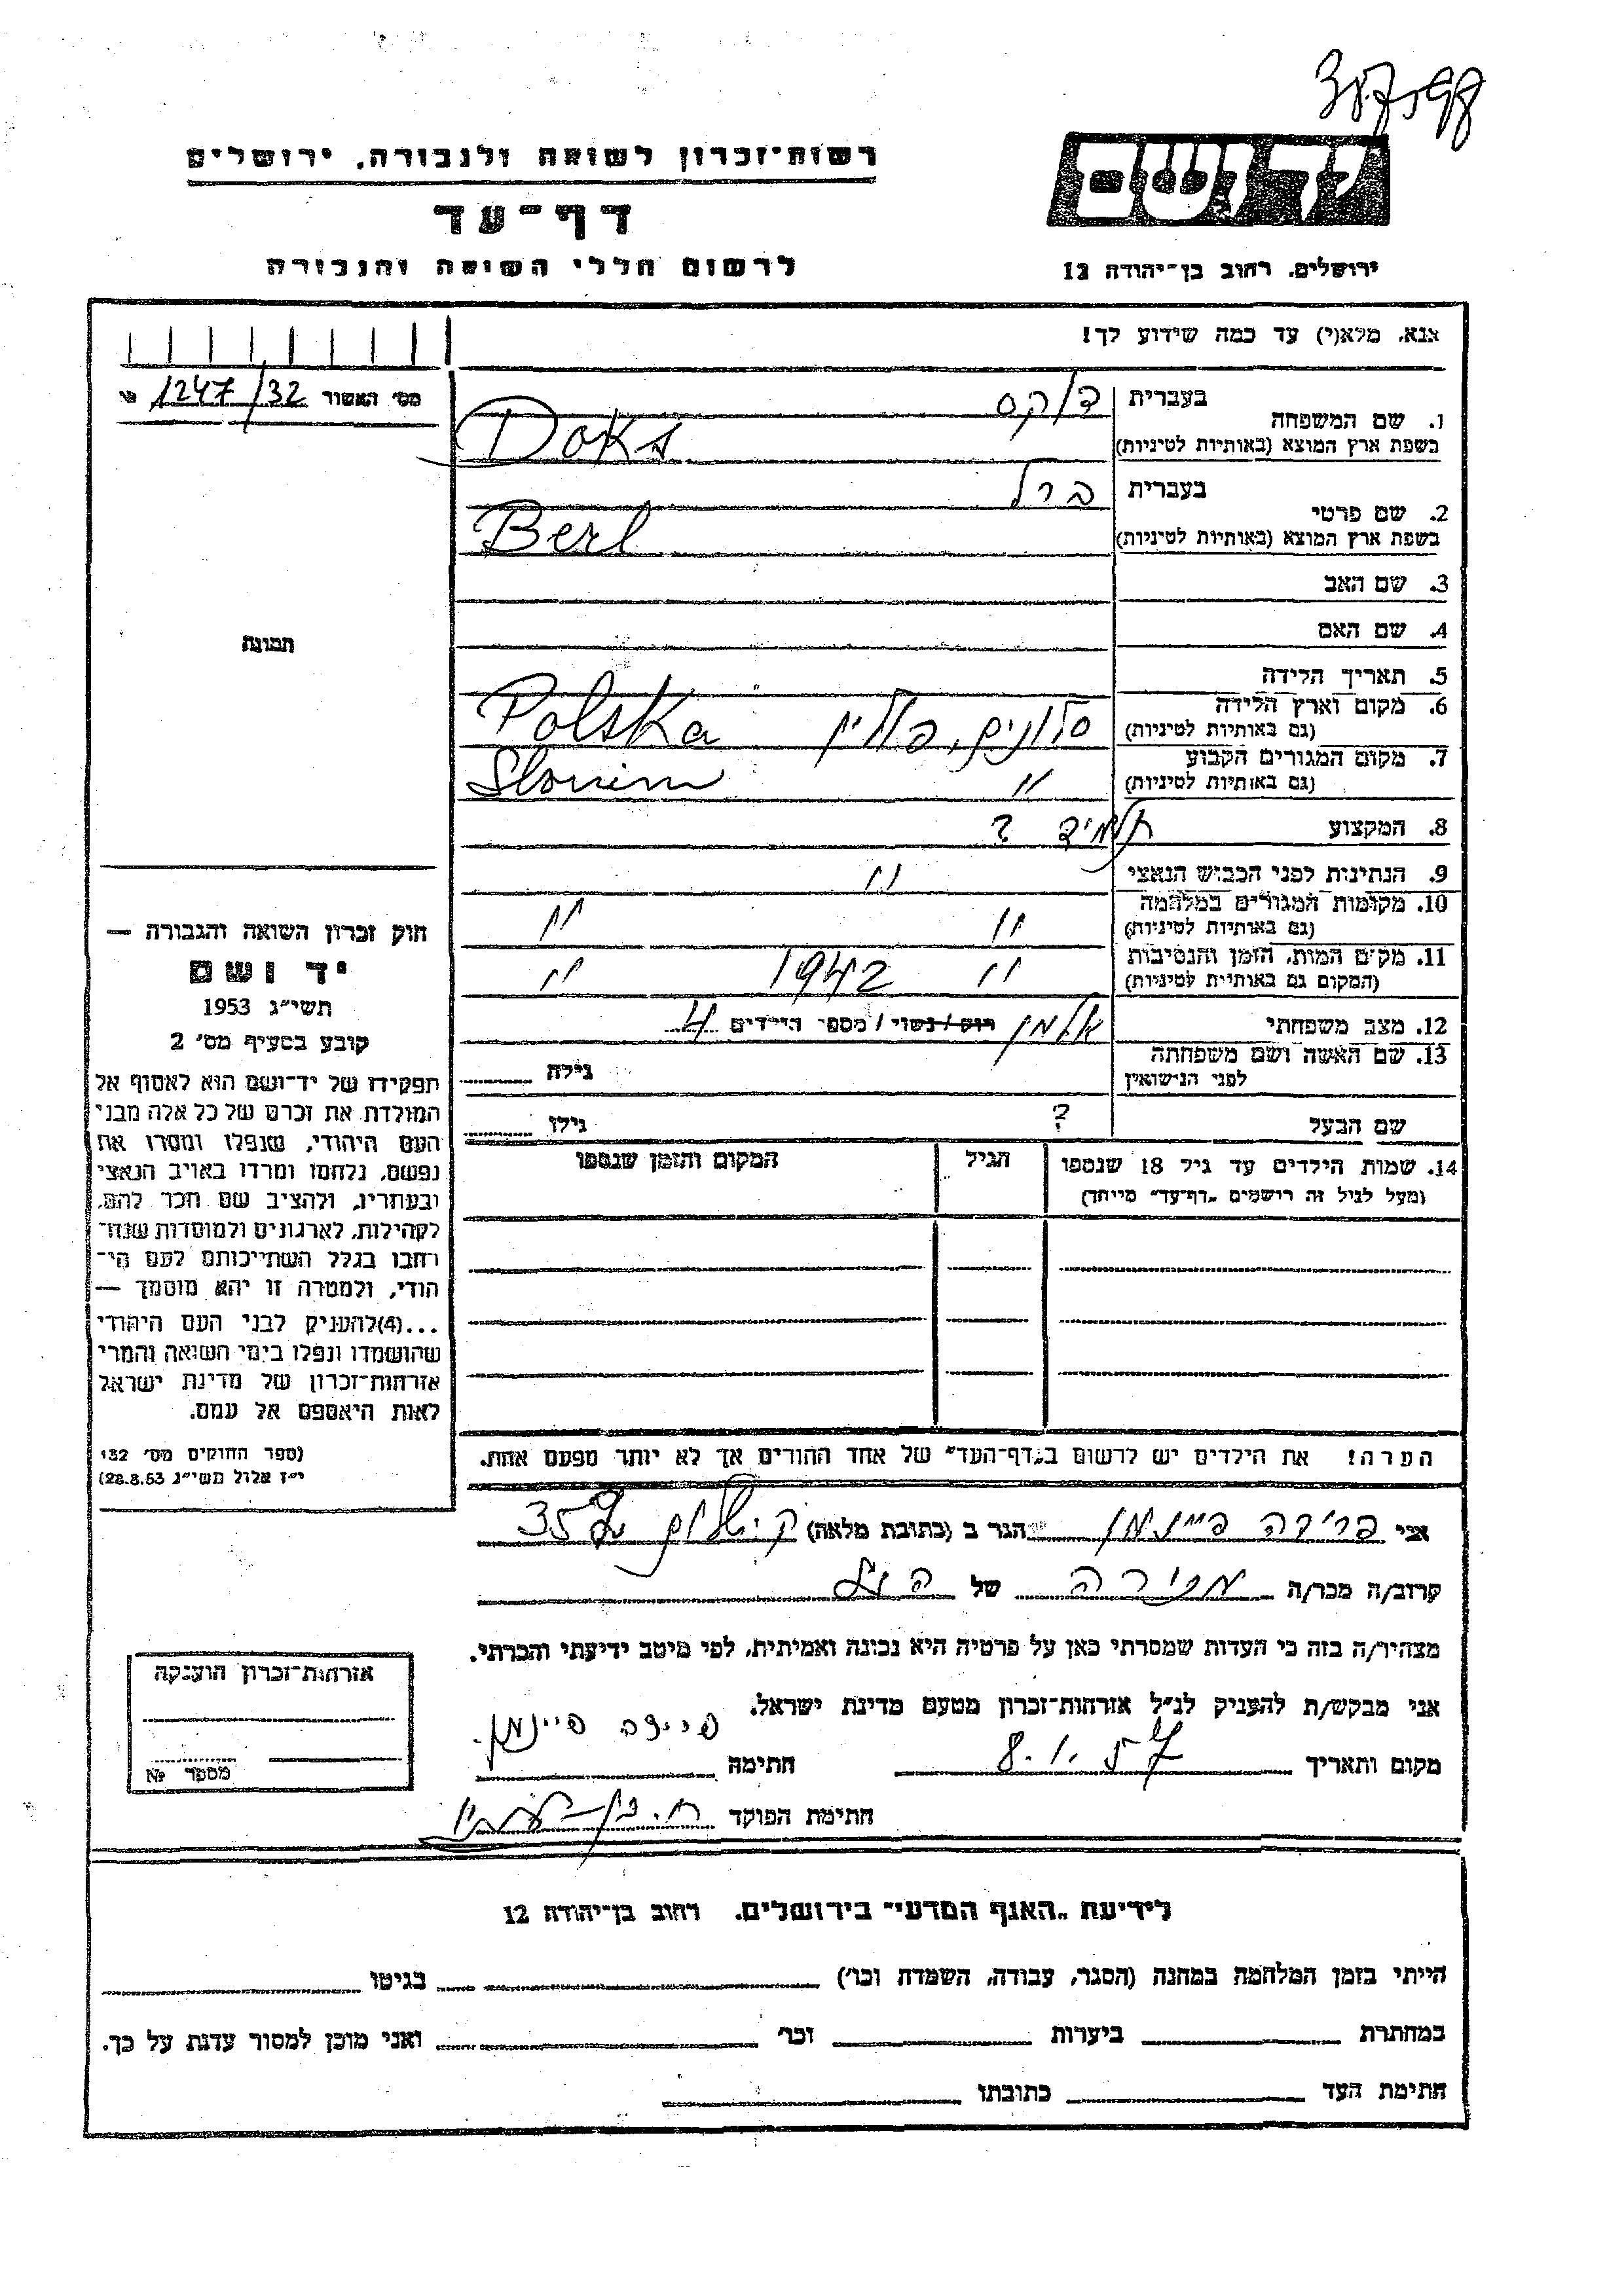 רשות־זכרון לשואה ולגבורה, ירושלים
דף־עד
לרשום חללי השואה והגבורה
יד ושם
ירושלים, רחוב בן־יהודה 12
אנא, מלא(י) עד כמה שידוע לך!
מס׳ האשור 1247/32
1. שם המשפחה
בעברית דוקס
בשפת ארץ המוצא (באותיות לטיניות) Doks
2. שם פרטי
בעברית ברל
בשפת ארץ המוצא (באותיות לטיניות) Berl
3. שם האב
4. שם האם
תמונה
5. תאריך הלידה
6. מקום וארץ הלידה סלונים, פולין Polska
(גם באותיות לטיניות)
7. מקום המגורים הקבוע " Slonim
(גם באותיות לטיניות)
8. המקצוע תלמיד ?
9. הנתינות לפני הכבוש הנאצי "
10. מקומות המגורים במלחמה " "
(גם באותיות לטיניות)
11. מקום המות, הזמן והנסיבות " 1942 "
(המקום גם באותיות לטיניות)
12. מצב משפחתי אלמן רווק/נשוי/מספר הילדים 4
13. שם האשה ושם משפחתה
לפני הנישואין
גילה
שם הבעל ? גילו
14. שמות הילדים עד גיל 18 שנספו
(מעל לגיל זה רושמים „דף־עד" מייחד)
הגיל
המקום והזמן שנספו
חוק זכרון השואה והגבורה —
יד ושם
תשי״ג 1953
קובע בסעיף מס׳ 2
תפקידו של יד־ושם הוא לאסוף אל
המולדת את זכרם של כל אלה מבני
העם היהודי, שנפלו ומסרו את
נפשם, נלחמו ומרדו באויב הנאצי
ובעוזריו, ולהציב שם וזכר להם,
לקהילות, לארגונים ולמוסדות שנח־
רבו בגלל השתייכותם לעם הי־
הודי, ולמטרה זו יהא מוסמך —
...(4)להעניק לבני העם היהודי
שהושמדו ונפלו בימי השואה והמרי
אזרחות־זכרון של מדינת ישראל
לאות היאספם אל עמם.
(ספר החוקים מס׳ 132
י״ז אלול תשי״ג 28.8.53)
הערה! את הילדים יש לרשום ב„דף־העד" של אחד ההורים אך לא יותר מפעם אחת.
אני פרידה פיינמן הגר ב (כתובת מלאה)
קרוב/ה מכר/ה מכירה של
מצהיר/ה בזה כי העדות שמסרתי כאן על פרטיה היא נכונה ואמיתית, לפי מיטב ידיעתי והכרתי.
אני מבקש/ת להעניק לנ״ל אזרחות־זכרון מטעם מדינת ישראל.
מקום ותאריך 8.1.57 חתימה פיינמן
חתימת הפוקד
אזרחות־זכרון הוענקה
מספר №
לידיעת „האגף המדעי" בירושלים, רחוב בן־יהודה 12
הייתי בזמן המלחמה במחנה (הסגר, עבודה, השמדה וכו׳) בגיטו
במחתרת ביערות וכו׳ ואני מוכן למסור עדות על כך.
חתימת העד כתובתו